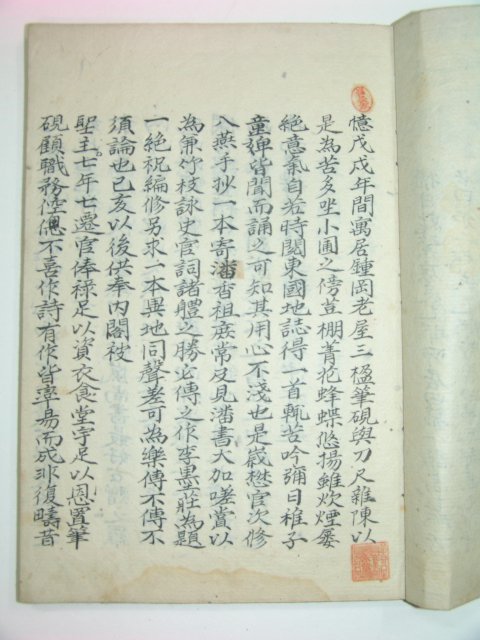 憶戊戌年間寓居鍾岡老屋三楹筆硯與刀尺雜陳以
是為苦多坐小圃之傍荳棚菁花蜂蝶悠揚雖炊煙屡
絶意氣自若時閱東國地誌得一首輒苦吟彌日稚子
童婢皆聞而誦之可知其用心不淺也是歲懋官次修
入燕手抄一本寄潘香祖庶常及見潘書大加嗟賞以
為兼竹枝詠史宮詞諸軆之勝必傳之作李墨莊為題
一絶祝編修另求一本異地同聲差可為樂傳不傳不
須論也己亥以後供奉内閣被
聖主七年七遷官俸禄足以資衣食堂宇足以置筆
硯顧職務倥傯不喜作詩有作皆率易而成非復疇昔